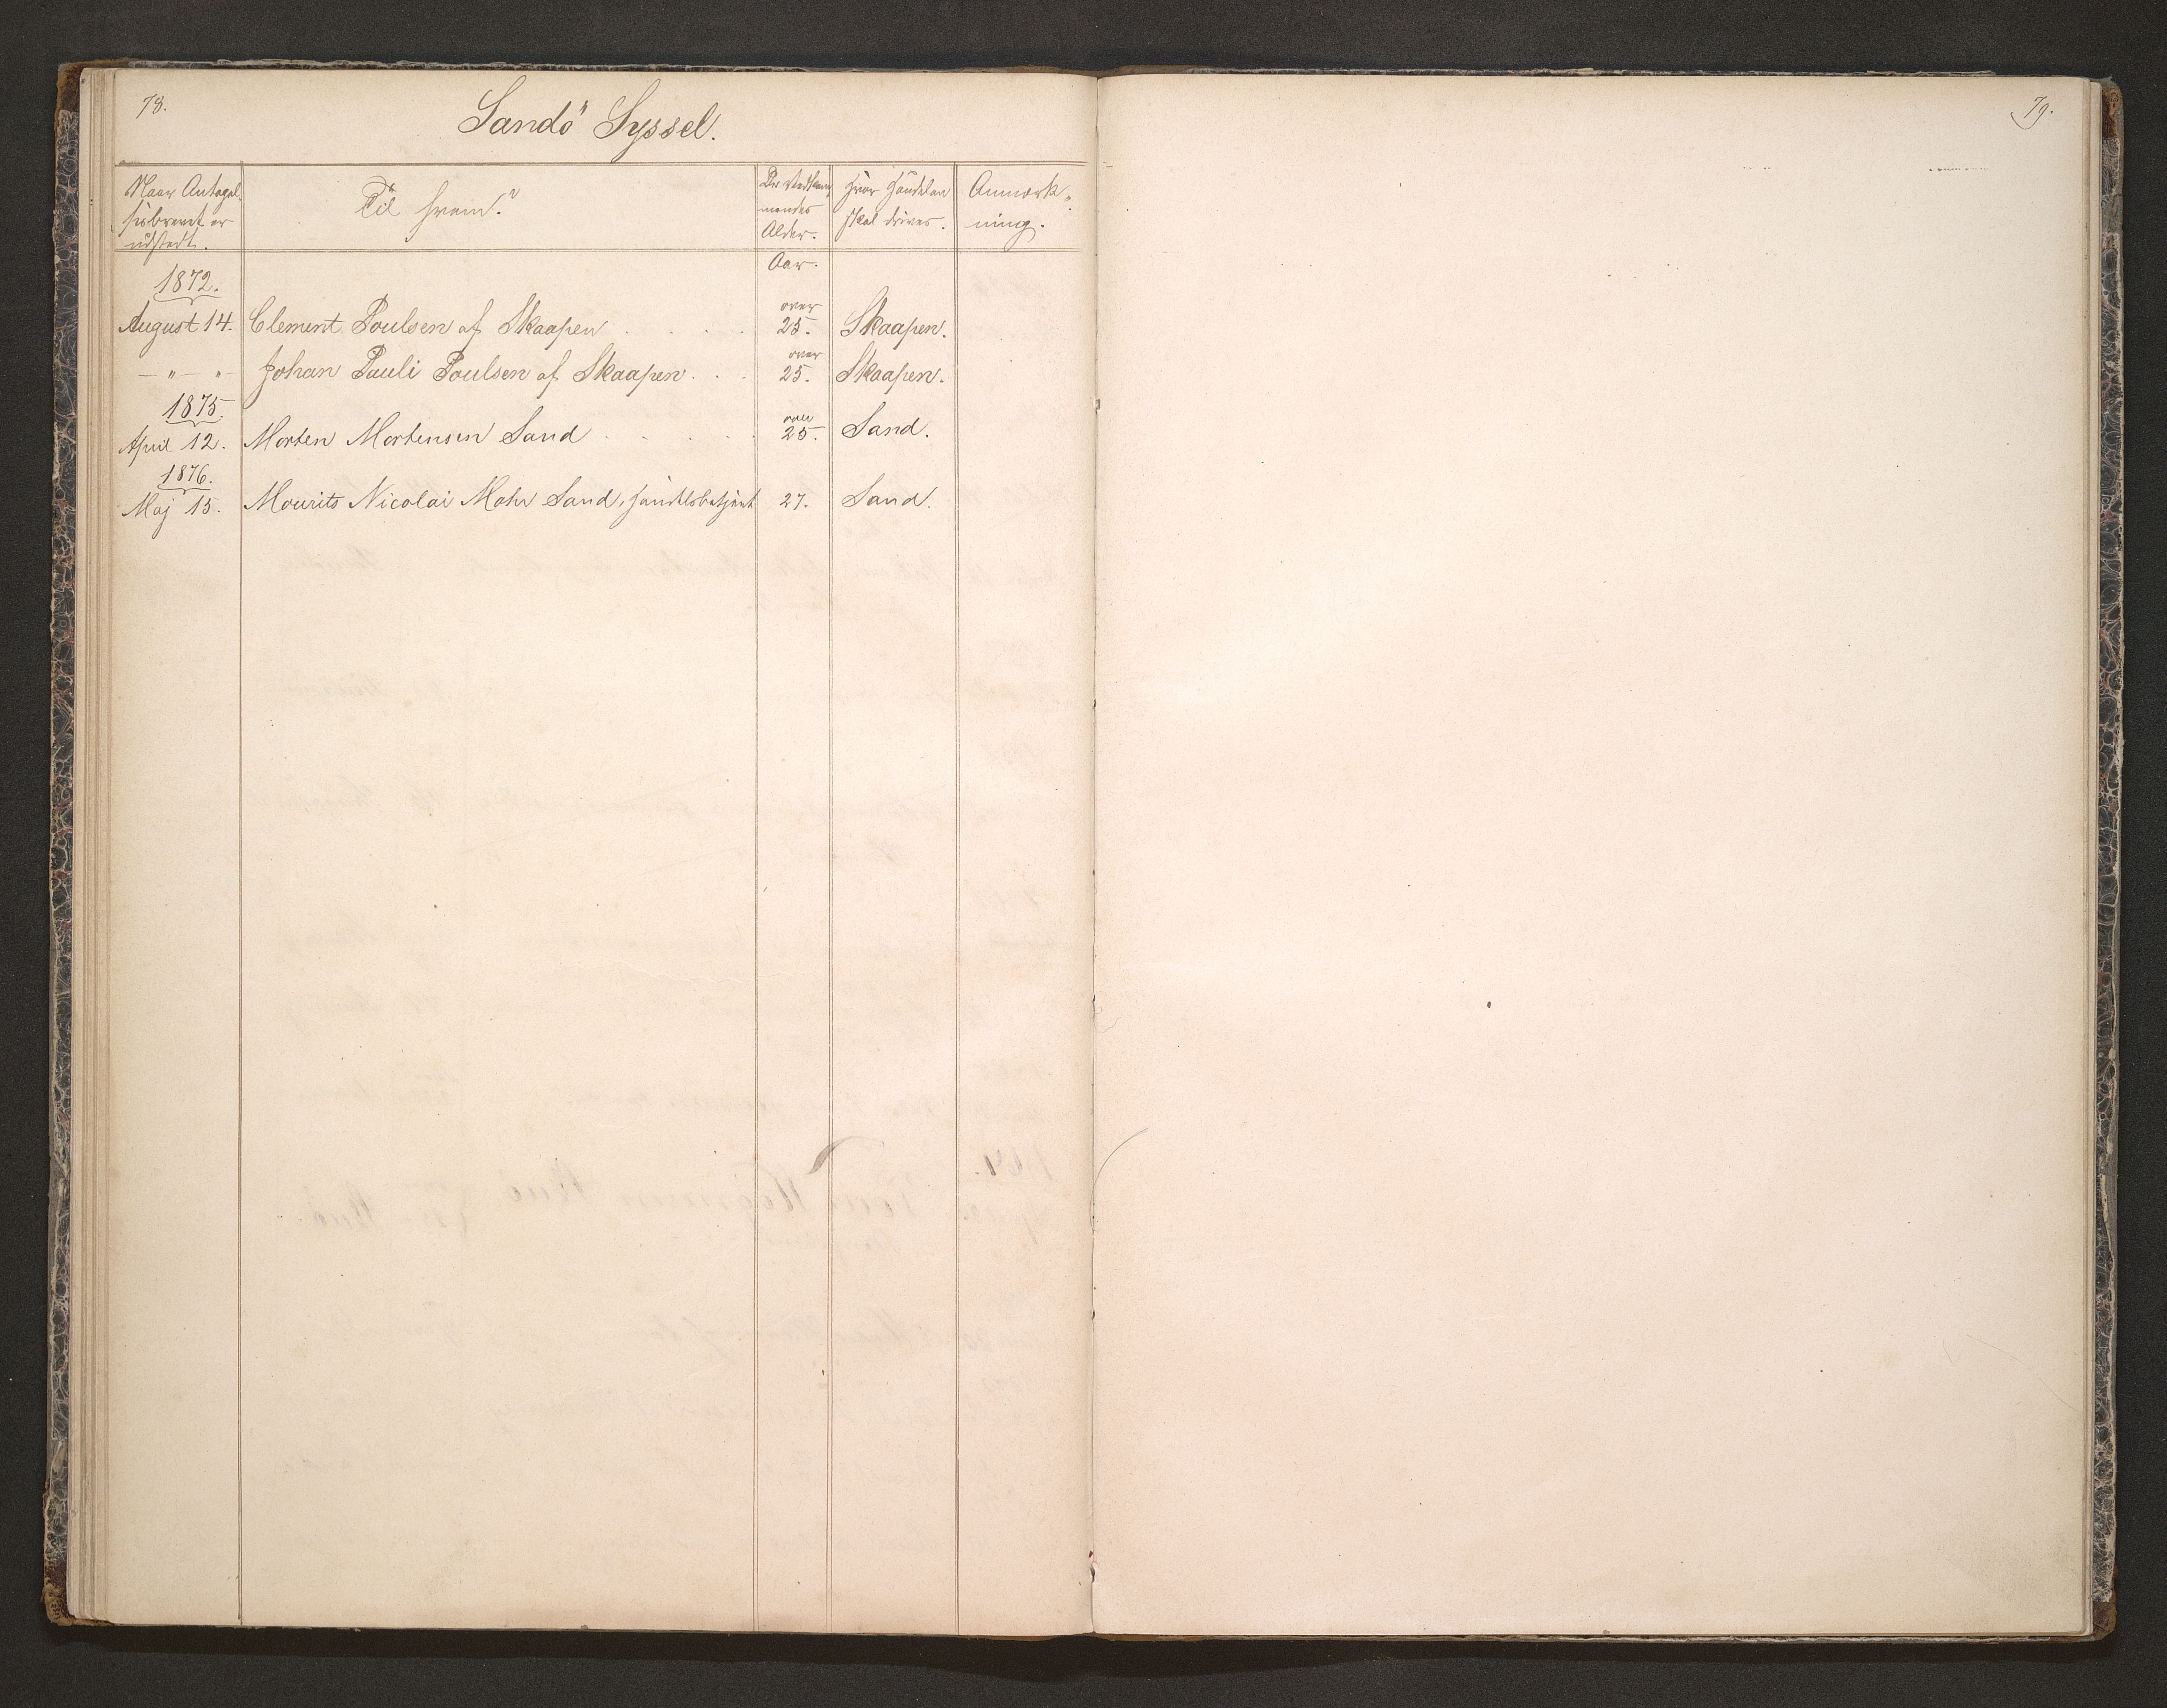 78.
Sandö Syssel.
79.
Naar Antagel-
sesbrevet er
udstedt.
Til hvem?
De Vedkom-
mendes
Alder.
Hvor Handelen
skal drives.
Anmærk-
ning.
Aar.
1872.
August 14. Clement Poulsen af Skaapen . . . . over 25. Skaapen.
— " — " — Johan Pauli Poulsen af Skaapen . . . over 25. Skaapen.
1875.
April 12. Morten Mortensen Sand . . . . over 25. Sand.
1876.
Maj 15. Mourits Nicolai Mohr Sand, Handelsbetjent 27. Sand.